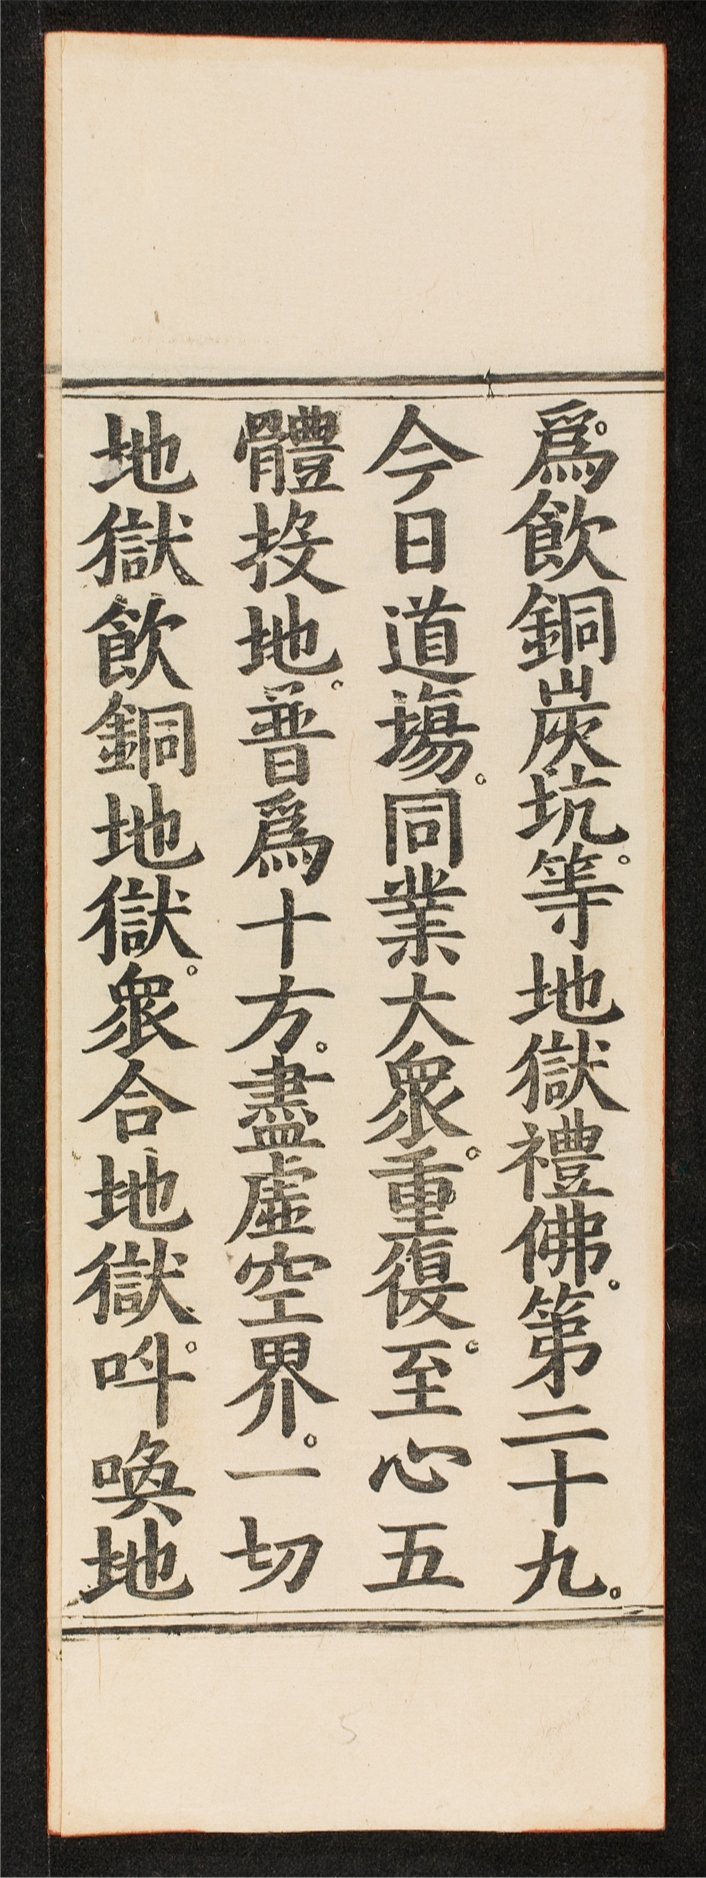 爲飲銅炭坑等。地獄禮佛。第二十九。
今日道場。同業大衆。重復至。心五
體投地。普爲十方。盡虛空界。一切
地獄飲銅地獄。衆合地獄。呌喚地
5